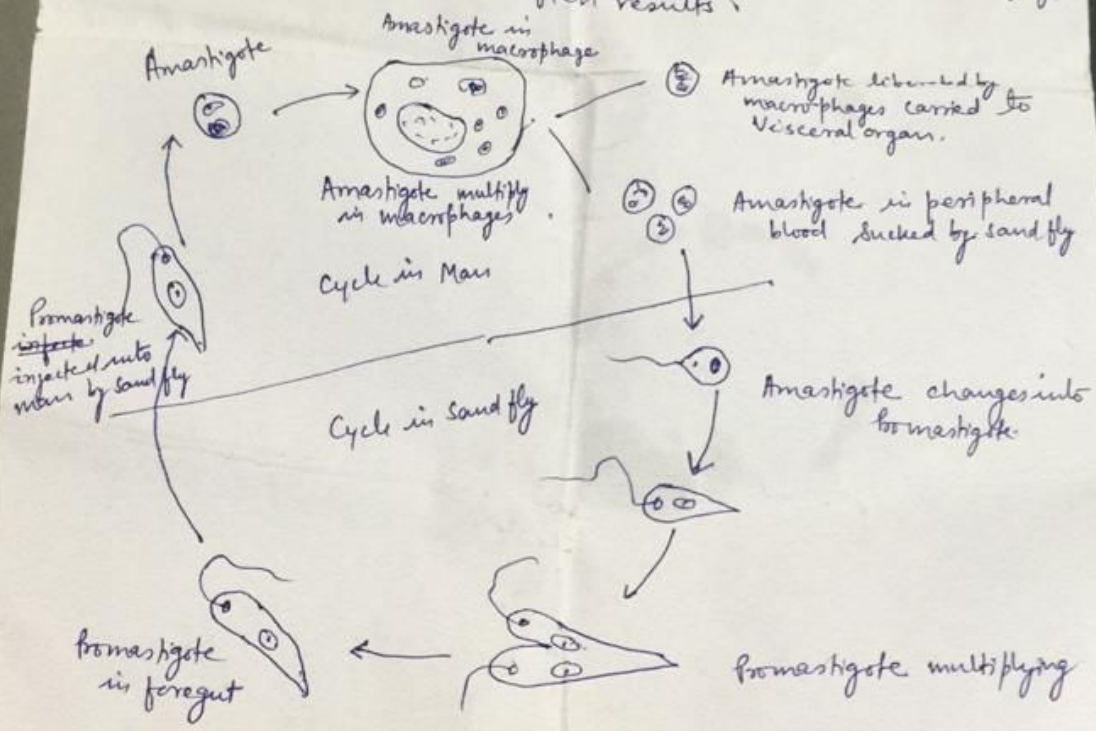 results.
Amastigote in
macrophage
Amastigote
Amastigote liberated by
macrophages carried to
Visceral organ.
Amastigote multiply
in macrophages
Amastigote in peripheral
blood sucked by sand fly
Cycle in Man
Promastigote
injected into
man by sand fly
Cycle in Sand fly
Amastigote changes into
bomastigote.
Promastigote
in foregut
Promastigote multiplying